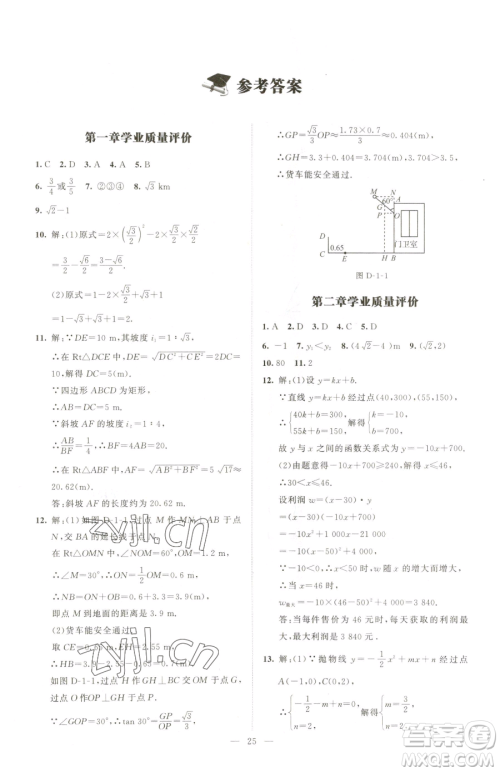 参考答案
第一章学业质量评价
1. C 2. D 3. A 4. A 5. B
6. 3/4或3/5 7. ②③④ 8. √3 km
9. √2-1
10. 解:(1)原式=2×(√3/2)²-2×√3/2×√2/2
=3/2-√6/2=(3-√6)/2.
(2)原式=1-2×√3/2+√3+1
=1-√3+√3+1
=2.
11. 解:∵DE=10 m,其坡度 i₁=1:√3,
∴在 Rt△DCE 中,DE=√(DC²+CE²)=2DC
=10.
∴DC=5.
∵四边形 ABCD 为矩形,
∴AB=DC=5(m).
∵斜坡 AF 的坡度为 i₂=1:4,
∴AB/BF=1/4,∴BF=4AB=20(m).
∴在 Rt△ABF 中,AF=√(AB²+BF²)=5√17≈
20.62(m).
答:斜坡 AF 的长度约为 20.62 m.
12. 解:(1)如图 D-1-1,过点 N 作地面的垂线交于点
N,并交过点 O 的水平线于点 A.
在 Rt△OMN 中,∠NOM=60°,OM=1.2 m,
∴∠M=30°,∴ON=1/2 OM=0.6 m.
∴NB=ON+OB=0.6+3.3=3.9(m),
即点 M 到地面的距离是 3.9 m.
(2)货车能安全通过.
∴HB=3.9-0.65-2.55=0.7(m).
∵∠GOP=30°,∴tan 30°=GP/OP=√3/3.
∴GP=√3/3 OP≈(1.73×0.7)/3≈0.40(m).
∴GH=3.3+0.40=3.70>3.5.
∴货车能安全通过.
M N
60°
G
P O
门卫室
C 0.65 E H B
图 D-1-1
第二章学业质量评价
1. A 2. D 3. D 4. C 5. D
6. -1 7. y₁<y₂ 8. (4√2-4)m 9. (√2,2)
10. 80 11. 2
12. 解:(1)设 y=kx+b.
∵直线 y=kx+b 经过点(40,300),(55,150),
∴{40k+b=300, 55k+b=150. 解得{k=-10, b=700.
故 y 与 x 之间的函数关系式为 y=-10x+700.
(2)由题意得-10x+700≥240,解得 x≤46.
∴30<x≤46.
设利润 w=(x-30)·y=(x-30)(-10x+700)
=-10x²+1 000x-21 000
=-10(x-50)²+4 000.
∵-10<0,
∴x<50 时,w 随 x 的增大而增大,当 x=46 时,
w最大=-10×(46-50)²+4 000=3 840.
答:当销售单价为 46 元时,每天获取的利润最
大,最大利润是 3 840 元.
13. 解:(1)∵抛物线 y=-1/2x²+mx+n 经过点
A(-1,0),C(0,2),
∴{-1/2-m+n=0, n=2. 解得{m=3/2, n=2.
25